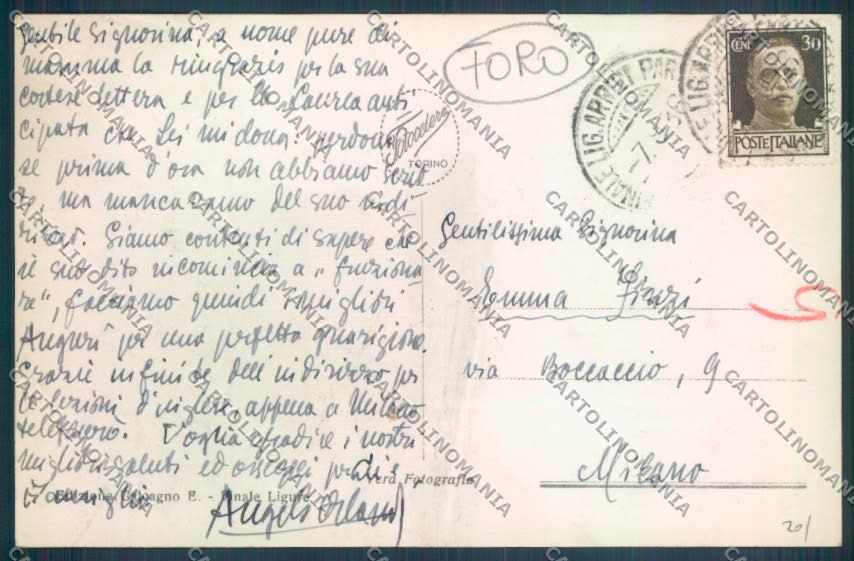 Gentile Signorina, a nome pure di
mamma La ringrazio per la sua
cortese lettera e per la Laurea anti
cipata che Lei mi dona! Perdoni
se prima d'ora non abbiamo scrit
to, ma mancavamo del suo indi
rizzo. Siamo contenti di sapere che
il suo dito ricomincia a "funziona
re", facciamo quindi i migliori
Auguri per una perfetta guarigione.
Grazie infinite dell'indirizzo per
le lezioni d'inglese, appena a Milano
telefonerò. Voglia gradire i nostri
migliori saluti ed ossequi
Vera Fotografia
Edizione E. - Finale Ligure
Angelo
FORO
Fotocelere
TORINO
FINALE LIG. APPEN PAR
CENT. 30
POSTE ITALIANE
Gentilissima Signorina
Emma
via Boccaccio, 9
Milano
20/
CARTOLINOMANIA